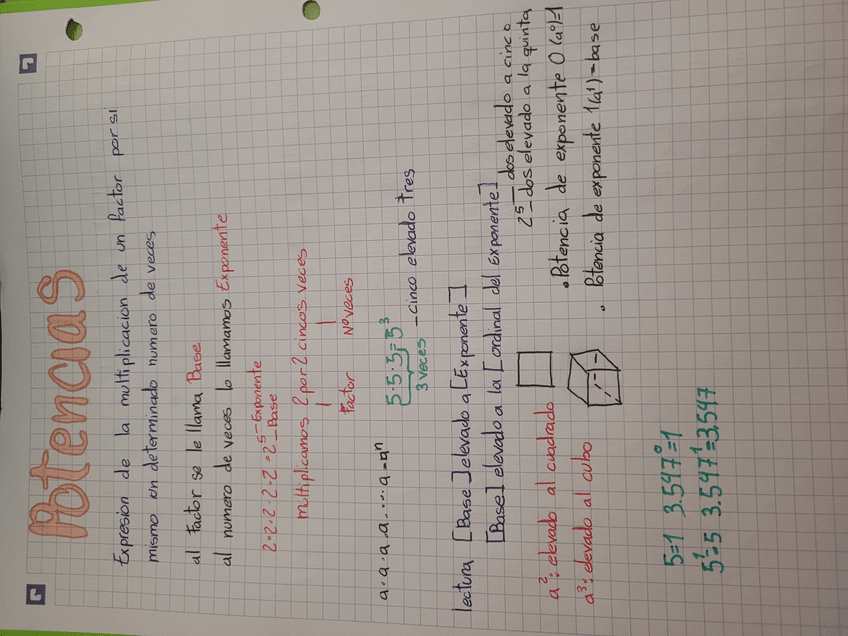 Potencias
Expresion de la multiplicacion de un factor por si
mismo un determinado numero de veces
al factor se le llama Base
al numero de veces lo llamamos Exponente
2·2·2·2·2=2⁵-Exponente
-Base
multiplicamos 2 por 2 cincos veces
factor Nº veces
a·a·a·a·...·a=aⁿ
5·5·5=5³ -cinco elevado tres
3 veces
lectura [Base] elevado a [Exponente]
[Base] elevado a la [ordinal del exponente]
2⁵ - dos elevado a cinco
- dos elevado a la quinta
a²: elevado al cuadrado
a³: elevado al cubo
• Potencia de exponente 0 (a⁰)=1
• Potencia de exponente 1(a¹)=base
5=1 3.547⁰=1
5¹=5 3.547¹=3.547